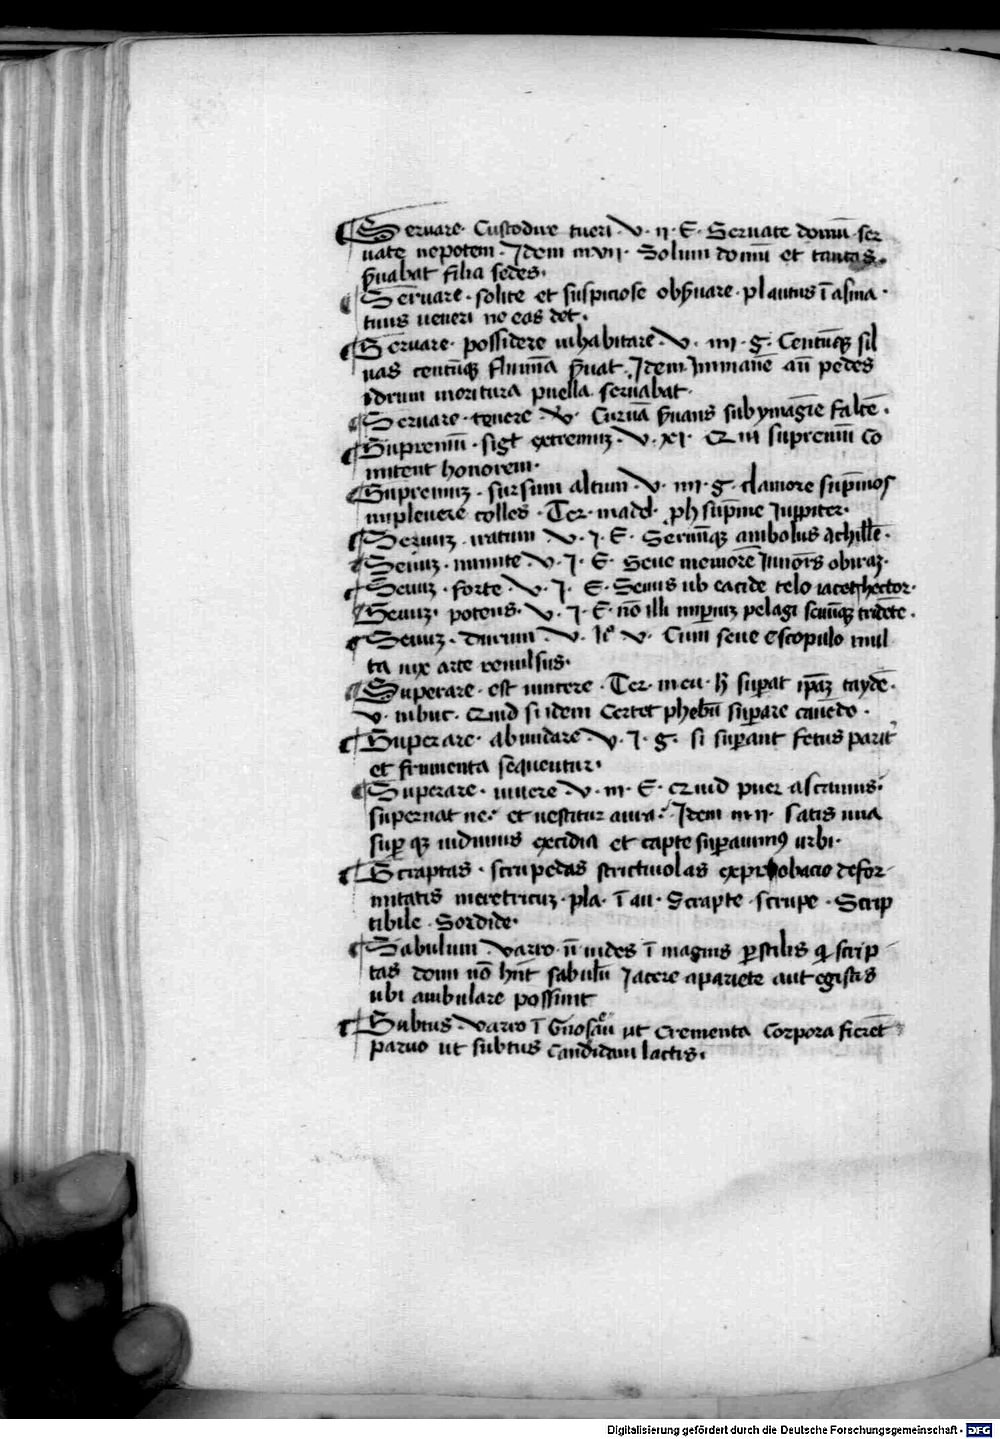 Seruare · Custodire tueri · V · ii · E · Seruate domū ser
uate nepotem · Idem in vii · Solum domū et tantas ·
ꝑuabat filia sedes ·
Seruare · solite et suspiciose obꝑuare · plautus ī asina ·
tuus ueneri ne eas det ·
Seruare · possidere inhabitare · V · iiii · g · Centūqꝫ sil
uas centūqꝫ flumīa ꝑuat · Idem Immanē aū pedes
idrum moritura puella seruabat ·
Seruare · tenere · V · Curuā ꝑuans sub ymagīe falcē ·
Supremū · sigt extremuꝫ · V · xi · Qui supremū co
mitent honorem ·
Supremuꝫ · sursum altum · V · iiii · g · clamore supᷓmos
impleuere colles · Ter · in adel · ph supᷓme Iuppiter ·
Seuuꝫ · iratum V · I · E · Seuumqꝫ ambobus Achillē ·
Seuuꝫ · inmite · V · I · E · Seue memorē Iunonis obiraꝫ ·
Seuuꝫ · forte · V · I · E · Seuus ub eacide telo iacet hector ·
Seuuꝫ · potens · V · I · E · nō illi imꝑiuꝫ pelagi seuūqꝫ tridēte ·
Seuuꝫ · durum V · Iᵒ V · Cum seue e scopulo mul
ta uix arte reuulsus ·
Superare · est uincere · Ter · in eu · h suꝑat ipᷓaꝫ taydē ·
V · in buc · Quid si idem Certet phebū suꝑare canēdo ·
Superare · abundare · V · I · g · si suꝑant fetus parit᷑
et frumenta sequentur ·
Superare · uiuere · V · iii · E · Quid puer ascanius ·
superuat ne · et uestitur aura · Idem in ii · satis una
suꝑ qꝫ uidimus excidia et capte suꝑauimꝰ urbi ·
Scraptas · scrupedas strictiuolas exprobacio defor
mitatis meretricuꝫ · pla · ī au · Scrapte · scrupe · Scrip
tibile · Sordide ·
Sabulum Varro · ñ uides ī magnis ꝑstilis qi scrip
tas domi nō hñt sabulū Iacere a pariete aut egistis
ubi ambulare possint
Subtus · Varro ī ut Crementa Corpora fierēt
paruo ut subtus Candidam lactis ·
Digitalisierung gefördert durch die Deutsche Forschungsgemeinschaft - DFG